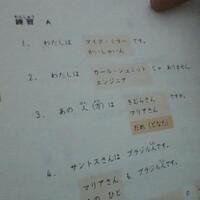 れんしゅう
練習 A
1. わたしは マイク・ミラー です。
かいしゃいん
2. わたしは カール・シュミット じゃ ありません。
エンジニア
3. あの 人(方)は きむらさん です。
マリアさん
だれ(どなた)
4. サントスさんは ブラジル人です。
マリアさん も ブラジル人です。
あの ひと